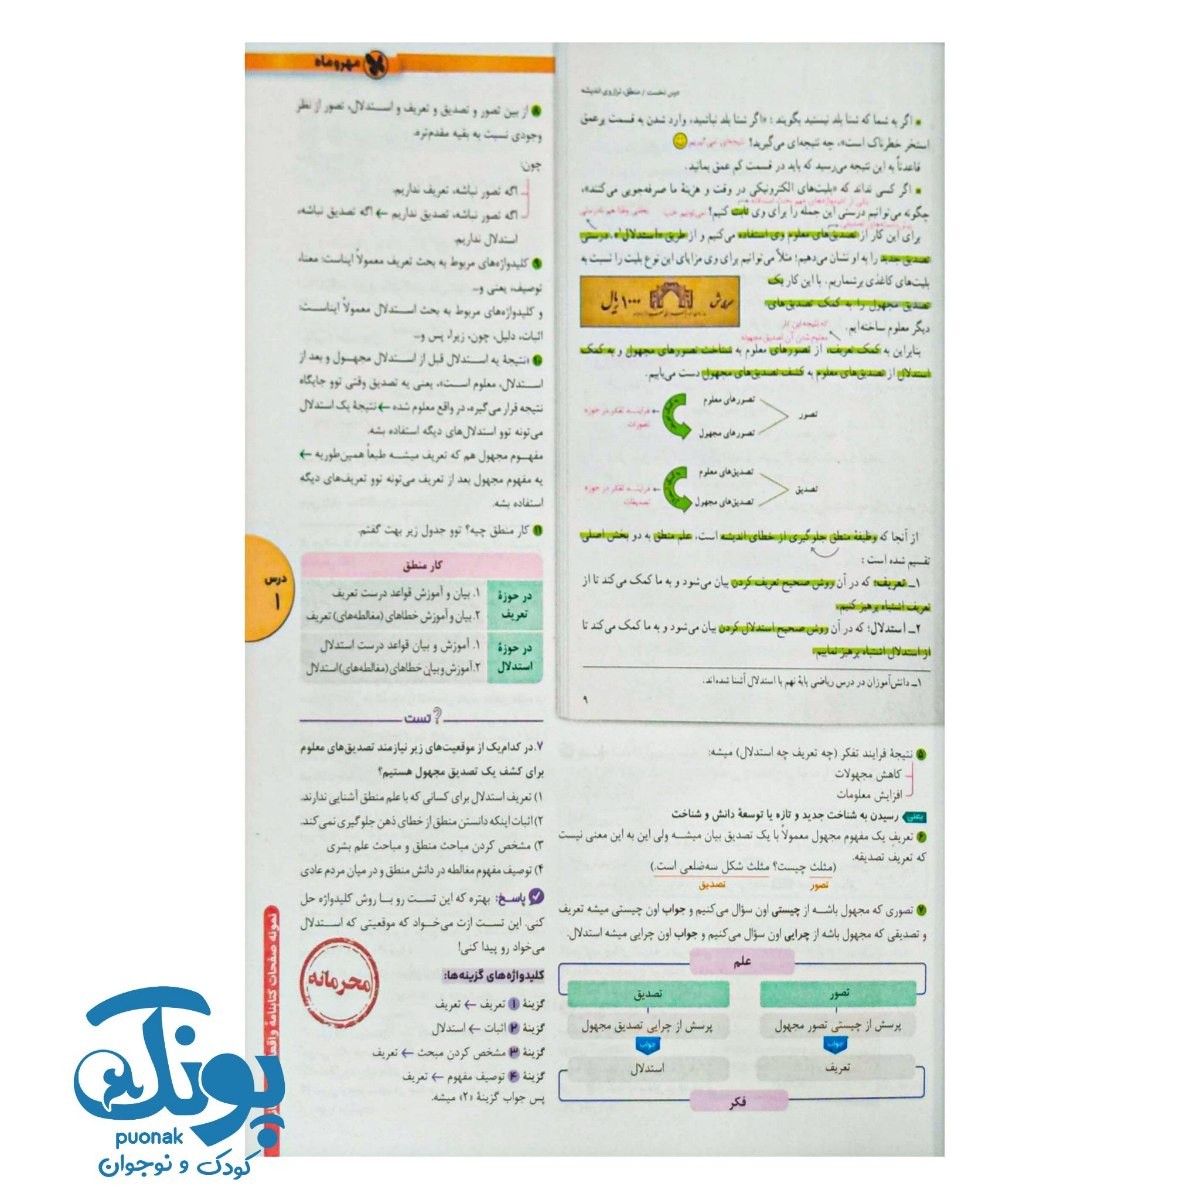 مهروماه
درس نخست / منطق، ترازوی اندیشه
▪ اگر به شما که شنا بلد نیستید بگویند: «اگر شنا بلد نباشید، وارد شدن به قسمت پرعمق
استخر خطرناک است»، چه نتیجه‌ای می‌گیرید؟ نتیجه‌ای می‌گیریم
قاعدتاً به این نتیجه می‌رسید که باید در قسمت کم عمق بمانید.
▪ اگر کسی نداند که «بلیت‌های الکترونیکی در وقت و هزینهٔ ما صرفه‌جویی می‌کنند»،
چگونه می‌توانیم درستی این جمله را برای وی ثابت کنیم؟
برای این کار از تصدیق‌های معلوم وی استفاده می‌کنیم و از طریق «استدلال»۱، درستی
تصدیق جدید را به او نشان می‌دهیم؛ مثلاً می‌توانیم برای وی مزایای این نوع بلیت را نسبت به
بلیت‌های کاغذی برشماریم. با این کار یک
تصدیق مجهول را به کمک تصدیق‌های
دیگر معلوم ساخته‌ایم.
۱۰۰۰ ریال
بنابراین به کمک تعریف، از تصورهای معلوم به شناخت تصورهای مجهول و به کمک
استدلال از تصدیق‌های معلوم به کشف تصدیق‌های مجهول دست می‌یابیم.
تصور
تصورهای معلوم
تصورهای مجهول
فرایند تفکر در حوزه
تصورات
تصدیق
تصدیق‌های معلوم
تصدیق‌های مجهول
فرایند تفکر در حوزه
تصدیقات
از آنجا که وظیفهٔ منطق جلوگیری از خطای اندیشه است، علم منطق به دو بخش اصلی
تقسیم شده است:
۱ــ تعریف؛ که در آن روش صحیح تعریف کردن بیان می‌شود و به ما کمک می‌کند تا از
تعریف اشتباه پرهیز کنیم.
۲ــ استدلال؛ که در آن روش صحیح استدلال کردن بیان می‌شود و به ما کمک می‌کند تا
از استدلال اشتباه پرهیز نماییم.
۱ــ دانش‌آموزان در درس ریاضی پایهٔ نهم با استدلال آشنا شده‌اند.
۹
۵ نتیجهٔ فرایند تفکر (چه تعریف چه استدلال) میشه:
کاهش مجهولات
افزایش معلومات
یعنی رسیدن به شناخت جدید و تازه یا توسعهٔ دانش و شناخت
۶ تعریف یک مفهوم مجهول معمولاً با یک تصدیق بیان میشه ولی این به این معنی نیست
که تعریف تصدیقه.
(مثلث چیست؟ مثلث شکل سه‌ضلعی است.)
تصور
تصدیق
۷ تصوری که مجهول باشه از چیستی اون سؤال می‌کنیم و جواب اون چیستی میشه تعریف
و تصدیقی که مجهول باشه از چرایی اون سؤال می‌کنیم و جواب اون چرایی میشه استدلال.
علم
تصور
تصدیق
پرسش از چیستی تصور مجهول
پرسش از چرایی تصدیق مجهول
جواب
جواب
تعریف
استدلال
فکر
۸ از بین تصور و تصدیق و تعریف و استدلال، تصور از نظر
وجودی نسبت به بقیه مقدم‌تره.
چون:
اگه تصور نباشه، تعریف نداریم.
اگه تصور نباشه، تصدیق نداریم ← اگه تصدیق نباشه،
استدلال نداریم.
۹ کلیدواژه‌های مربوط به بحث تعریف معمولاً ایناست: معنا،
توصیف، یعنی و...
و کلیدواژه‌های مربوط به بحث استدلال معمولاً ایناست:
اثبات، دلیل، چون، زیرا، پس و...
۱۰ «نتیجهٔ یه استدلال قبل از استدلال مجهول و بعد از
استدلال، معلوم است»، یعنی یه تصدیق وقتی توو جایگاه
نتیجه قرار می‌گیره، در واقع معلوم شده ← نتیجهٔ یک استدلال
می‌تونه توو استدلال‌های دیگه استفاده بشه.
مفهوم مجهول هم که تعریف میشه طبعاً همین‌طوریه ←
یه مفهوم مجهول بعد از تعریف می‌تونه توو تعریف‌های دیگه
استفاده بشه.
۱۱ کار منطق چیه؟ توو جدول زیر بهت گفتم.
کار منطق
در حوزهٔ تعریف
۱. بیان و آموزش قواعد درست تعریف
۲. بیان و آموزش خطاهای (مغالطه‌های) تعریف
در حوزهٔ استدلال
۱. آموزش و بیان قواعد درست استدلال
۲. آموزش و بیان خطاهای (مغالطه‌های) استدلال
درس
۱
تست
۷. در کدام‌یک از موقعیت‌های زیر نیازمند تصدیق‌های معلوم
برای کشف یک تصدیق مجهول هستیم؟
۱) تعریف استدلال برای کسانی که با علم منطق آشنایی ندارند.
۲) اثبات اینکه دانستن منطق از خطای ذهن جلوگیری نمی‌کند.
۳) مشخص کردن مباحث منطق و مباحث علم بشری
۴) توصیف مفهوم مغالطه در دانش منطق و در میان مردم عادی
پاسخ: بهتره که این تست رو با روش کلیدواژه حل
کنی. این تست ازت می‌خواد که موقعیتی که استدلال
می‌خواد رو پیدا کنی!
کلیدواژه‌های گزینه‌ها:
گزینهٔ ۱ تعریف ← تعریف
گزینهٔ ۲ اثبات ← استدلال
گزینهٔ ۳ مشخص کردن مبحث ← تعریف
گزینهٔ ۴ توصیف مفهوم ← تعریف
پس جواب گزینهٔ «۲» میشه.
محرمانه
نمونه صفحات کتابنامهٔ واقعا
پونک
puonak
کودک و نوجوان